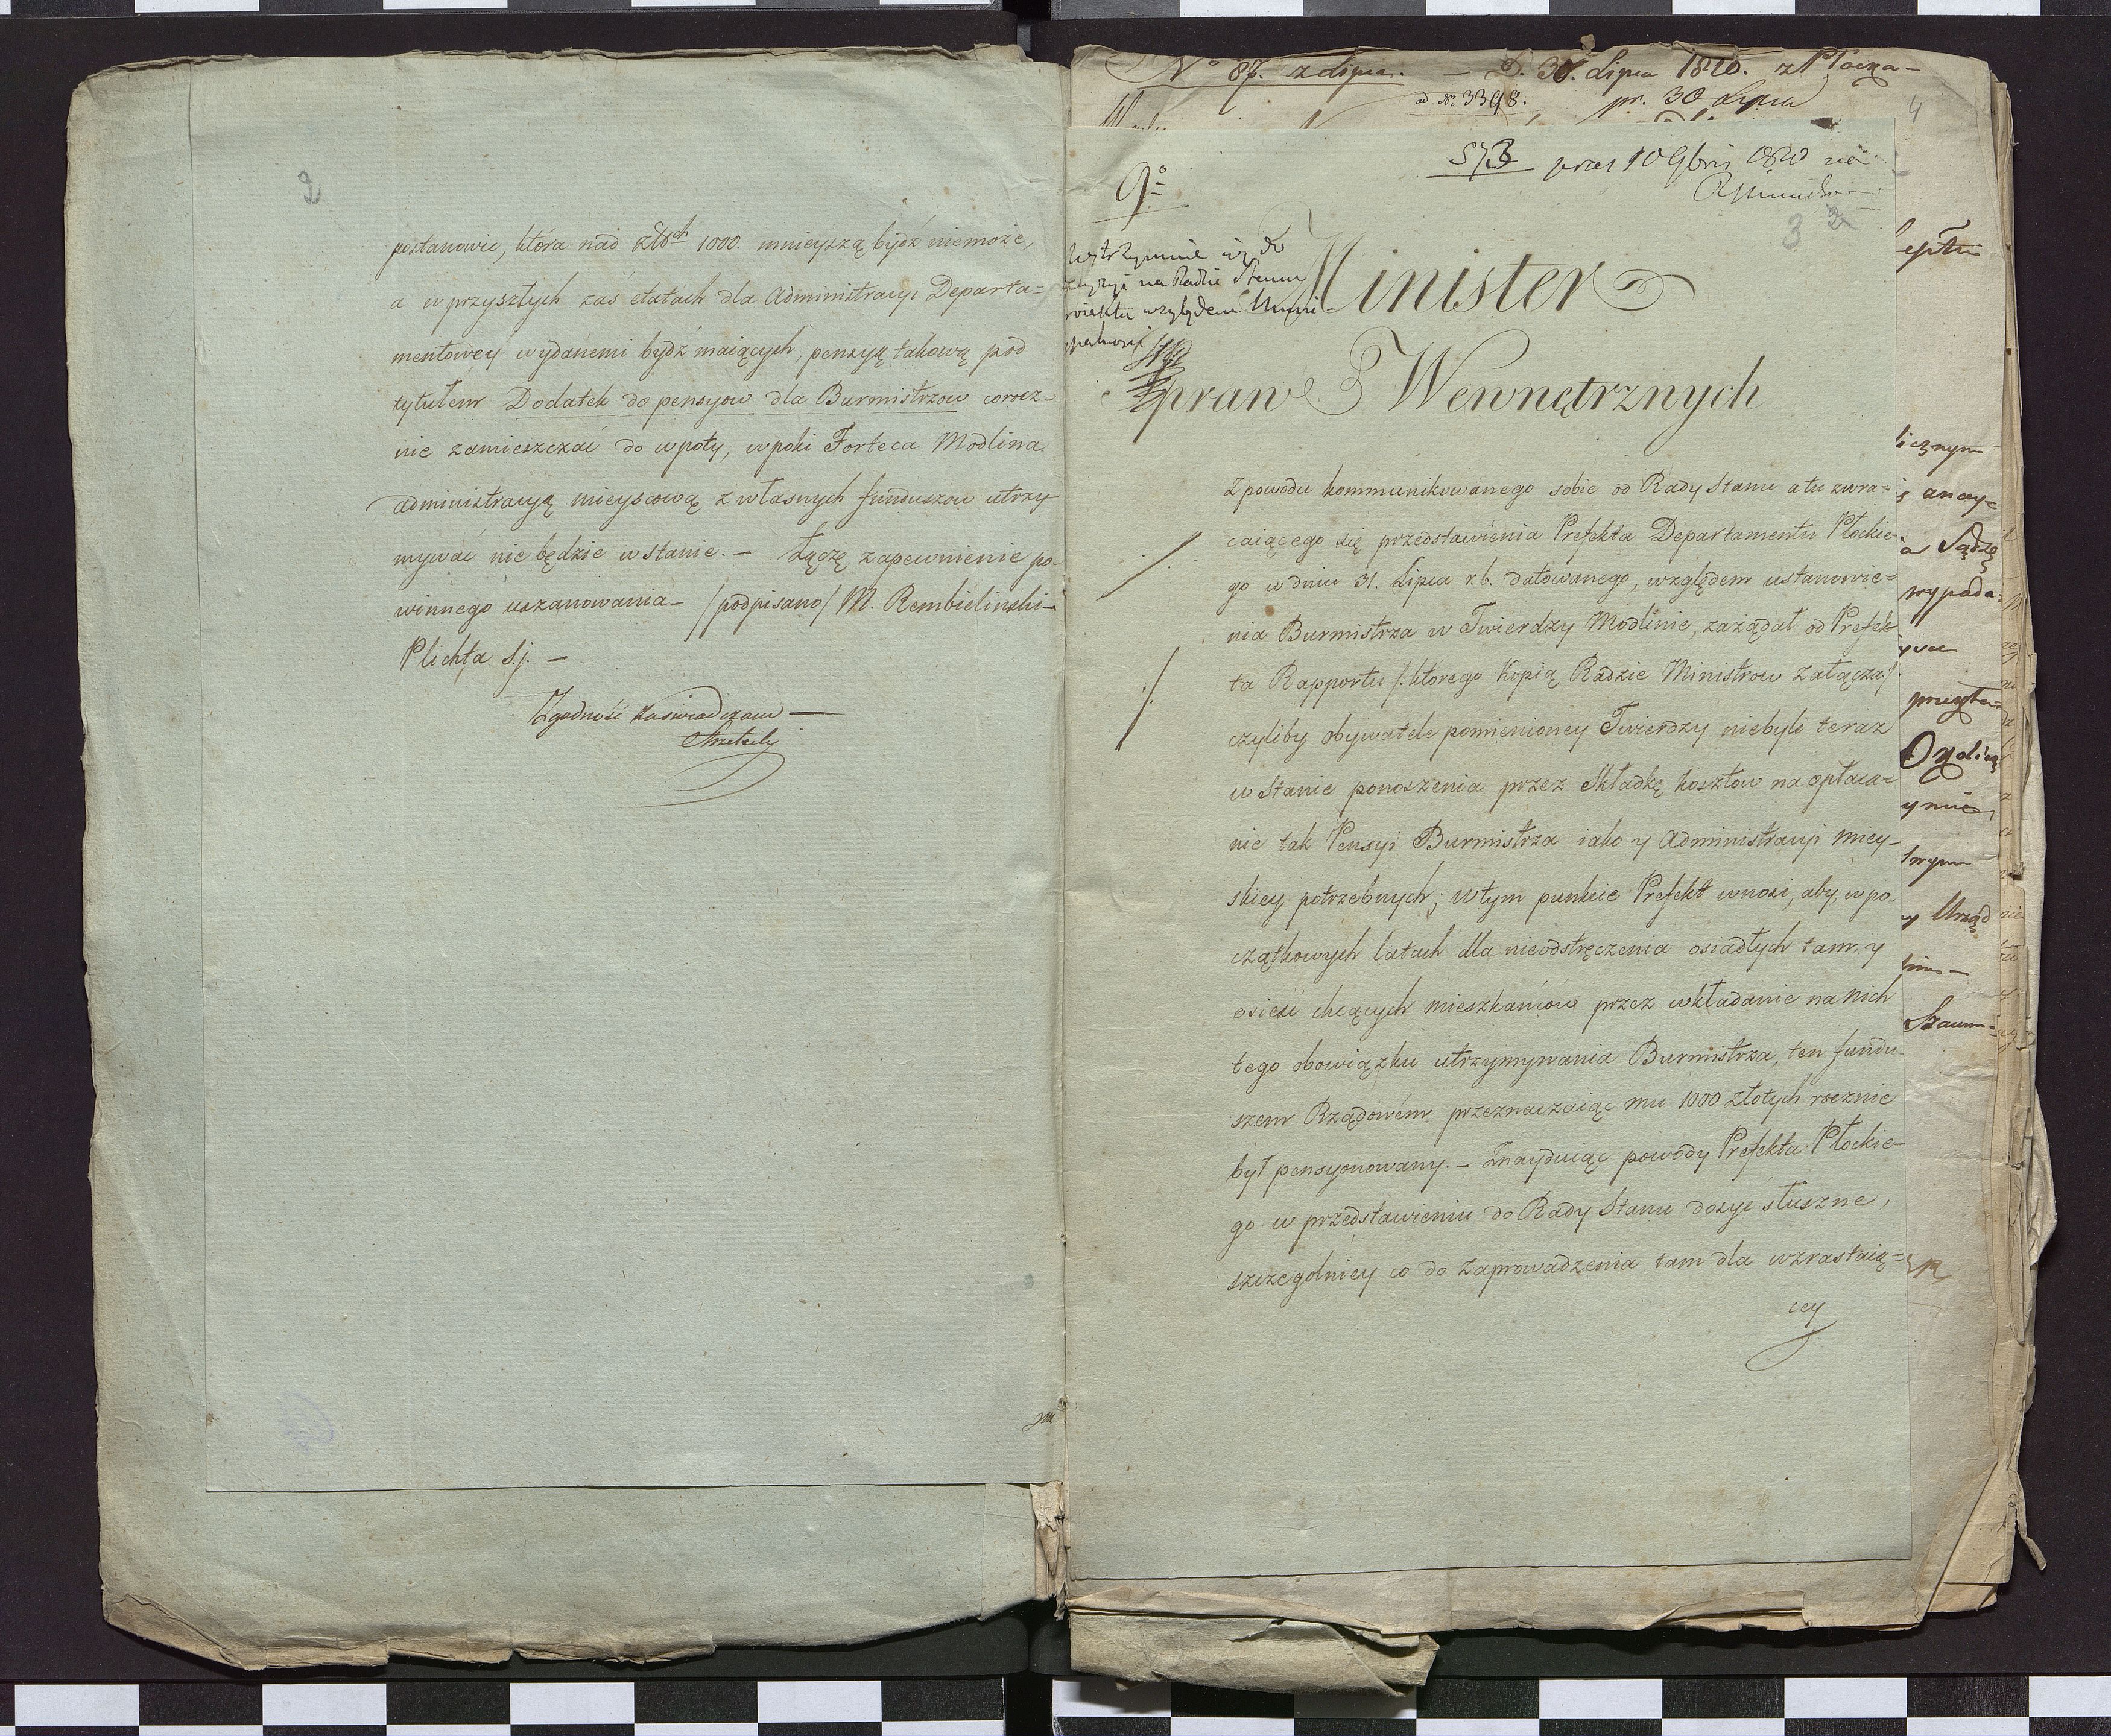 2
postanowić, która nad zł.ch 1000. mnieyszą bydź niemoże,
a w przyszłych zaś etatach dla Administracyi Departa=
mentowey wydanemi bydź maiących, pensyą takową pod
tytułem Dodatek do pensyow dla Burmistrzow corocz-
nie zamieszczać do wpoty, wpoki Forteca Modlina
administracyą mieyscową z własnych funduszow utrzy-
mywać nie będzie w stanie. — Łączę zapewnienie po-
winnego uszanowania — /podpisano/ M. Rembielinski —
Plichta S.j. —
Zgodność zaświadczam —
N° 87. z Lipca. — D. 30. Lipca 1810. z Płocka —
ad N° 3398. pr. 30 Lipca
4
573 praes 10 9bris 1810
9°
3 2
Wstrzymuie się do
na Radzie Stanu
względem Muni
Minister
Spraw Wewnętrznych
Z powodu kommunikowanego sobie od Rady Stanu a tu zwra=
caiącego się przedstawienia Prefekta Departamentu Płockie-
go w dniu 31. Lipca r.b. datowanego, względem ustanowie=
nia Burmistrza w Twierdzy Modlinie, zażądał od Prefek-
ta Rapportu /:którego Kopią Radzie Ministrow załącza:/
czyliby obywatele pomienioney Twierdzy niebyli teraz
w Stanie ponoszenia przez Składkę kosztow na opłaca=
nie tak Pensyi Burmistrza iako y Administracyi miey-
skiey potrzebnych; w tym punkcie Prefekt wnosi, aby, w po-
czątkowych latach dla nieodstręczenia osiadłych tam, y
osieść chcących mieszkańców przez wkładanie na nich
tego obowiązku utrzymywania Burmistrza, ten fundu-
szem Rządowém przeznaczaiąc mu 1000 złotych rocznie
był pensyonowany. — Znayduiąc powody Prefekta Płockie-
go w przedstawieniu do Rady Stanu dosyć słuszne,
szczegolniey co do zaprowadzenia tam dla wzrastaią=
cey